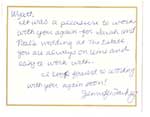 Wyeth,
It was a pleasure to work
with you again for Sarah and
Paul's wedding at The Estate
You are always on time and
easy to work with.
I look forward to working
with you again soon!
Jennifer